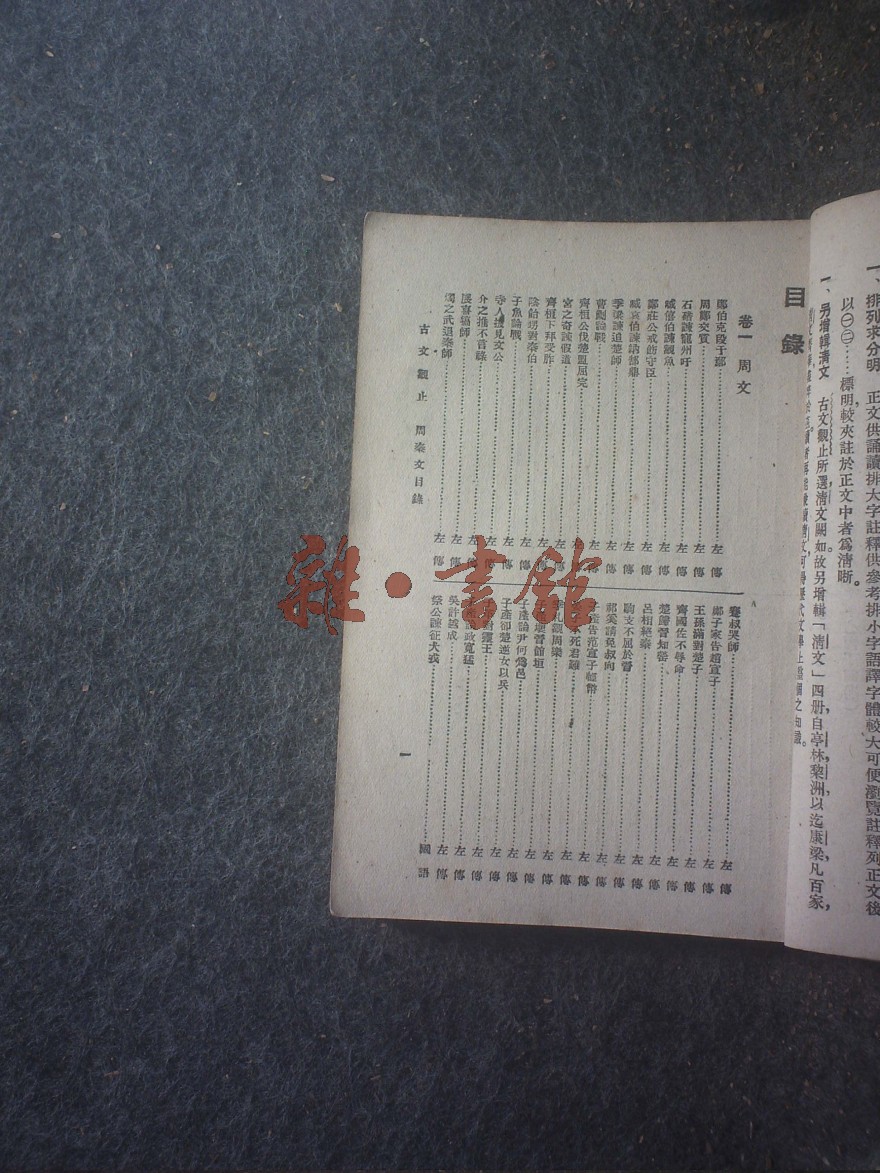 一、排列求分明　正文供誦讀排大字註釋供參考排小字語譯字體較大可便瀏覽註釋列正文後
以㊀㊁……標明,較夾註於正文中者爲清晰。
一、另增輯清文　古文觀止所選清文闕如故另增輯「清文」四册,自亭林,黎洲,以迄康梁,凡百家,
目錄
卷一　周文
鄭伯克段于鄢……左傳
周鄭交質……左傳
石碏諫寵州吁……左傳
臧僖伯諫觀魚……左傳
鄭莊公戒飭守臣……左傳
臧哀伯諫納郜鼎……左傳
季梁諫追楚師……左傳
曹劌論戰……左傳
齊桓公伐楚盟屈完……左傳
宮之奇諫假道……左傳
齊桓下拜受胙……左傳
陰飴甥對秦伯……左傳
子魚論戰……左傳
寺人披見文公……左傳
介之推不言祿……左傳
展喜犒師……左傳
燭之武退秦師……左傳
蹇叔哭師……左傳
鄭子家告趙宣子……左傳
王孫滿對楚子……左傳
齊國佐不辱命……左傳
楚歸晉知罃……左傳
呂相絕秦……左傳
駒支不屈於晉……左傳
祁奚請免叔向……左傳
子產告范宣子輕幣……左傳
死君難……左傳
季札觀周樂……左傳
壞晉館垣……左傳
子產論尹何爲邑……左傳
子產卻楚逆女以兵……左傳
對靈王……左傳
論政寬猛……左傳
吳許越成……左傳
祭公諫征犬戎……國語
古文觀止　周秦文目錄
一
雜·書館